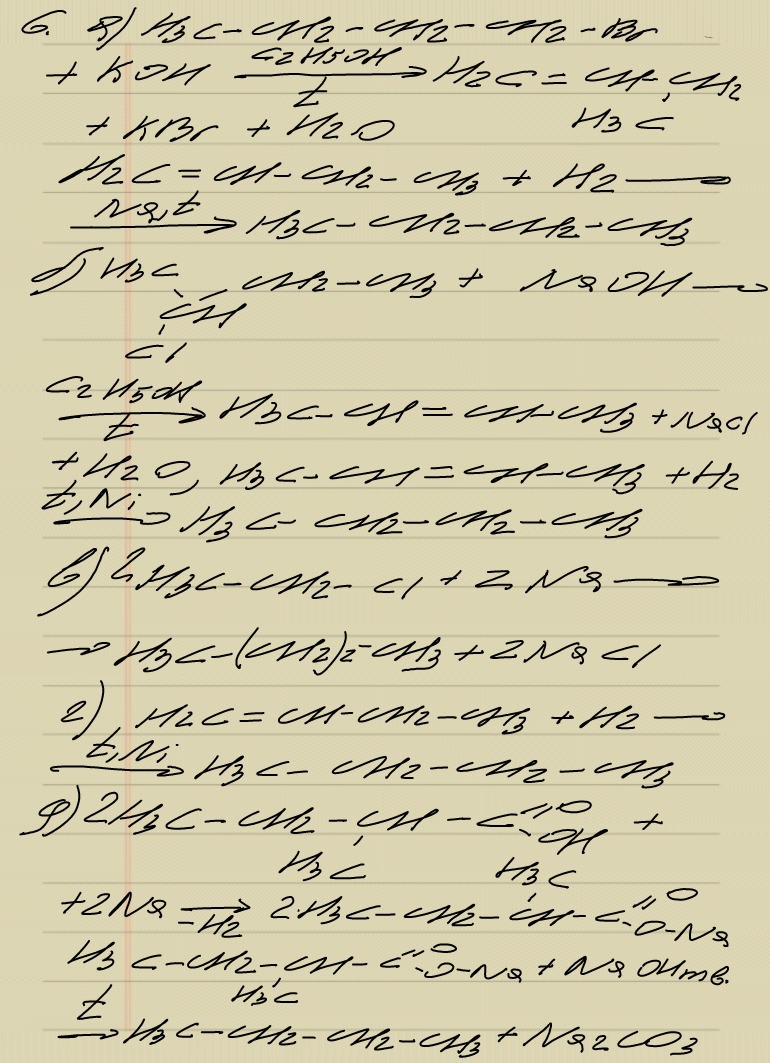 6. а) H3C-CH2-CH2-CH2-Br
+ KOH C2H5OH/t → H2C=CH-CH2
+ KBr + H2O H3C
H2C=CH-CH2-CH3 + H2 —
Na,t → H3C-CH2-CH2-CH3
б) H3C CH2-CH3 + NaOH →
CH
Cl
C2H5OH/t → H3C-CH=CH-CH3 + NaCl
+ H2O, H3C-CH=CH-CH3 + H2
t, Ni → H3C-CH2-CH2-CH3
в) 2H3C-CH2-Cl + 2Na →
→ H3C-(CH2)2-CH3 + 2NaCl
г) H2C=CH-CH2-CH3 + H2 →
t, Ni → H3C-CH2-CH2-CH3
д) 2H3C-CH2-CH-C=O OH +
H3C H3C
+2Na →/-H2 2·H3C-CH2-CH-C=O O-Na
H3C-CH2-CH-C=O O-Na + NaOHтв.
H3C
t → H3C-CH2-CH2-CH3 + Na2CO3